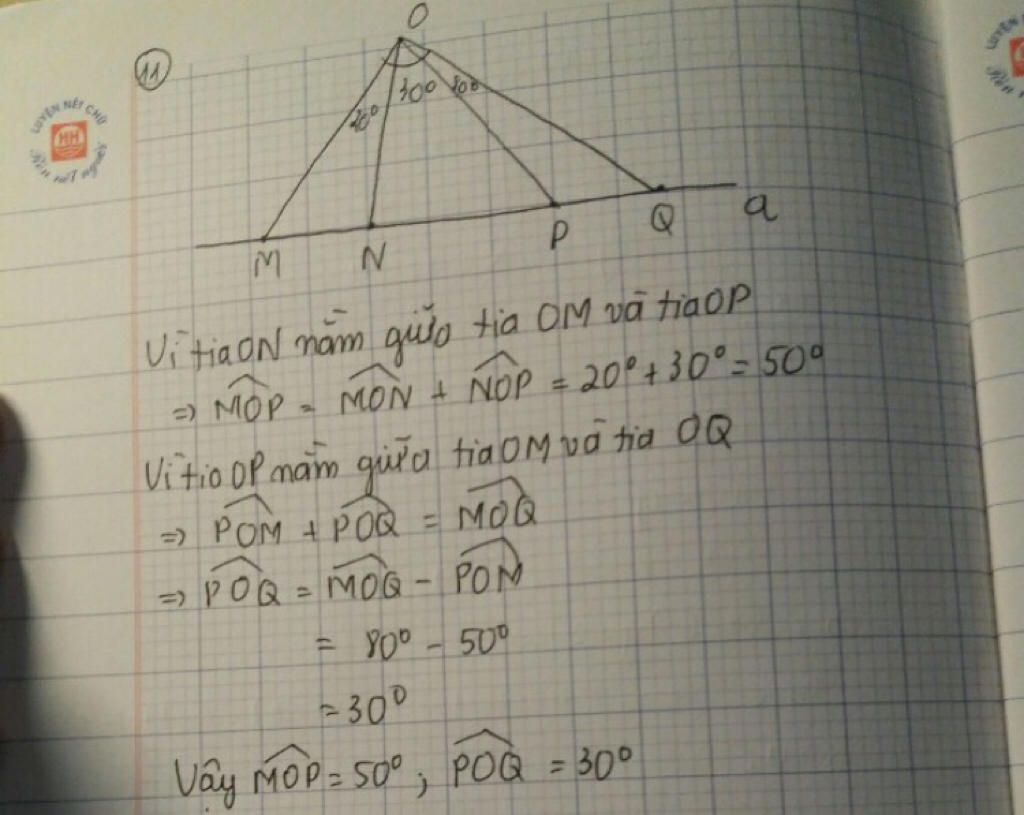 O
11
LUYỆN NÉT CHỮ
HH
Rèn nết người
20°
30°
80°
M
N
P
Q
a
Vì tia ON nằm giữa tia OM và tia OP
=> MOP = MON + NOP = 20° + 30° = 50°
Vì tia OP nằm giữa tia OM và tia OQ
=> POM + POQ = MOQ
=> POQ = MOQ - POM
= 80° - 50°
= 30°
Vậy MOP = 50°, POQ = 30°